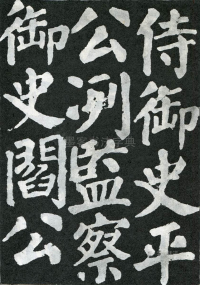 侍御史平
公冽監察
御史閻公